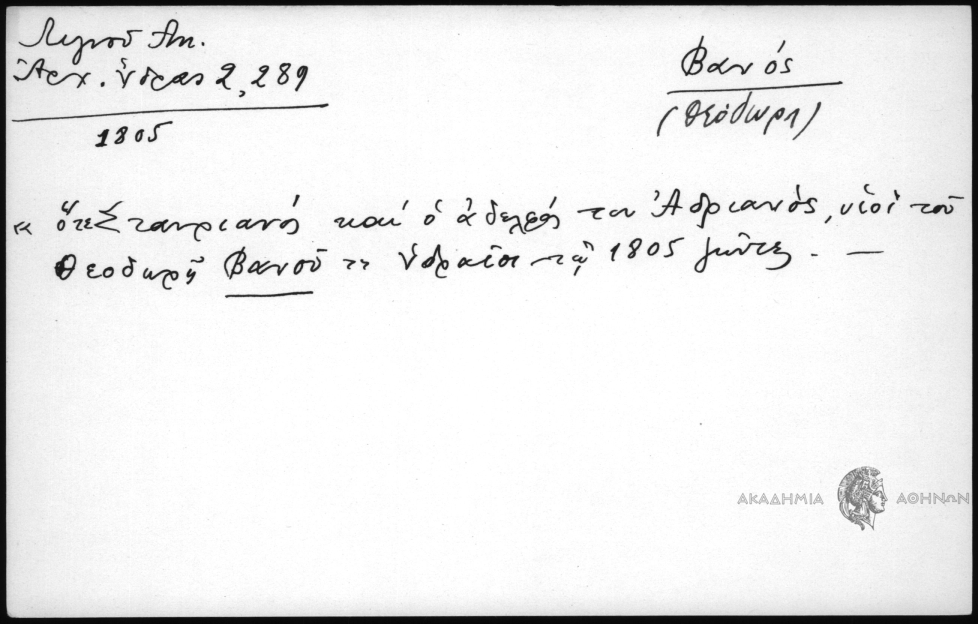 Λιγνοῦ Ἀν.
Ἀρχ. Ὕδρας 2, 289
1805
Βανός
(Θεόδωρη)
« ὅτε Σταυριανός καί ὁ ἀδελφός του Ἀδριανός, υἱοί τοῦ
Θεοδωρῆ Βανοῦ Ὑδραῖοι τῷ 1805 ζῶντες. —
ΑΚΑΔΗΜΙΑ ΑΘΗΝΩΝ